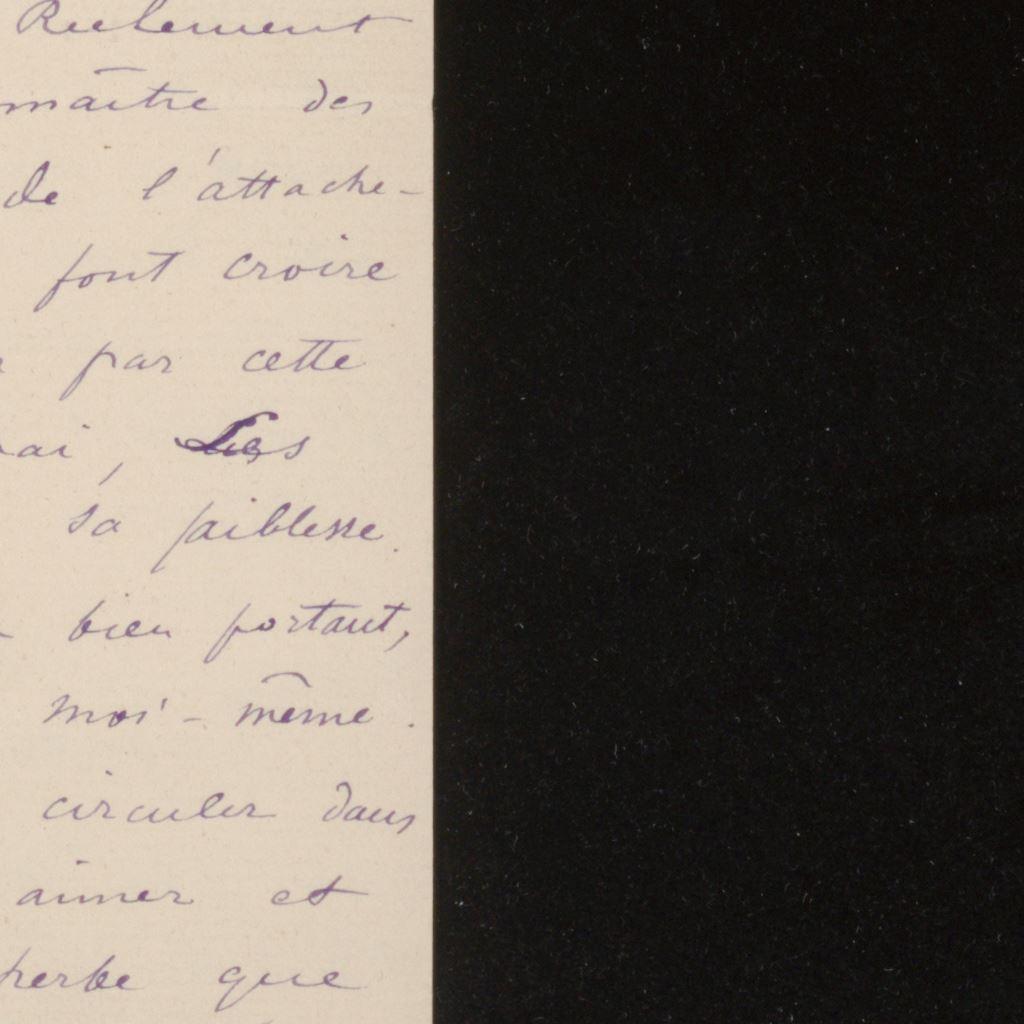 Reelement
maître des
de l'attache-
font croire
par cette
ai,
sa faiblesse.
bien portant,
moi-même.
circuler dans
aimer et
perbe que